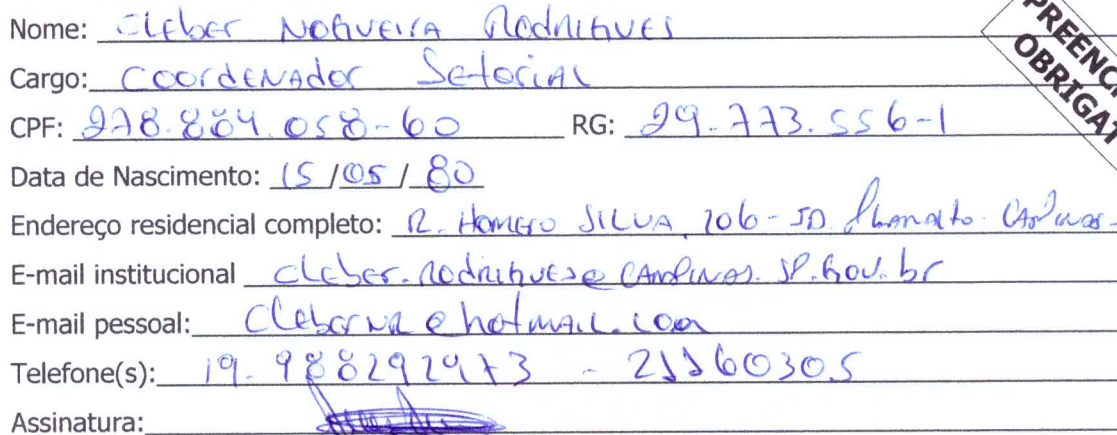 Nome: Cleber Nogueira Rodrigues
PREENCH
OBRIGAT
Cargo: Coordenador Setorial
CPF: 278.884.058-60 RG: 29.773.556-1
Data de Nascimento: 15/05/80
Endereço residencial completo: R. Homero SILVA, 106 - JD. Planalto. Campinas-
E-mail institucional cleber.rodrigues@campinas.sp.gov.br
E-mail pessoal: clebernr@hotmail.com
Telefone(s): 19-988292973 - 21160305
Assinatura: